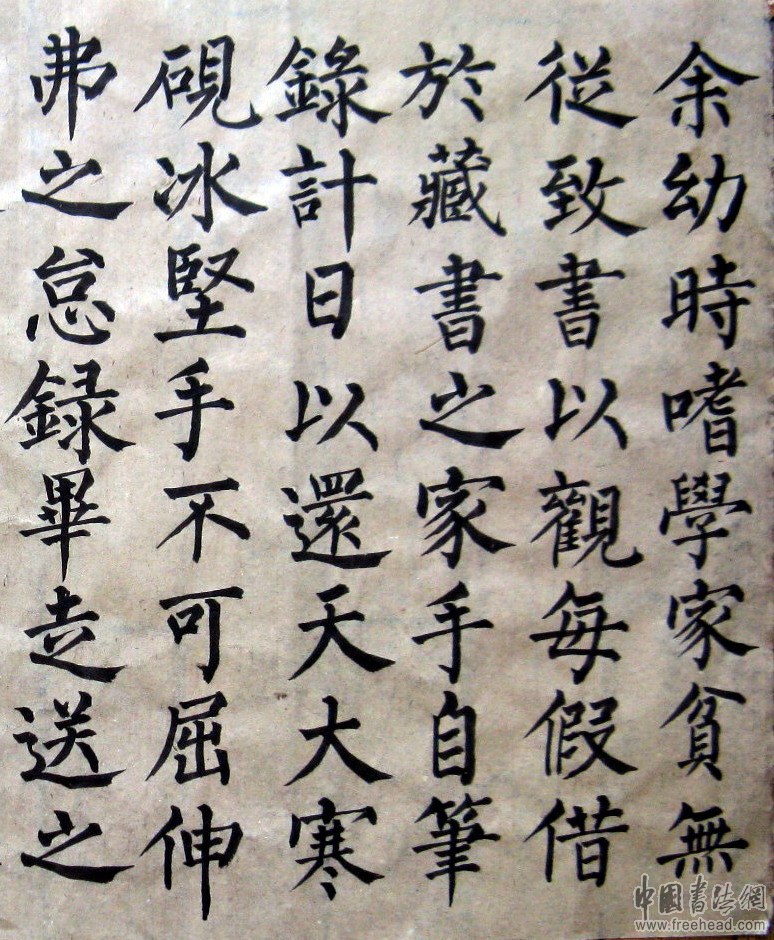 余幼時嗜學家貧無
從致書以觀每假借
於藏書之家手自筆
錄計日以還天大寒
硯冰堅手不可屈伸
弗之怠録畢走送之
中國書法網
www.freehead.com